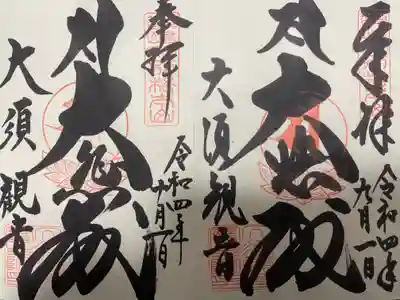 奉拝
令和四年
九月一日
大悲殿
大須観音
奉拝
令和四年
十月一日
大悲殿
大須観音